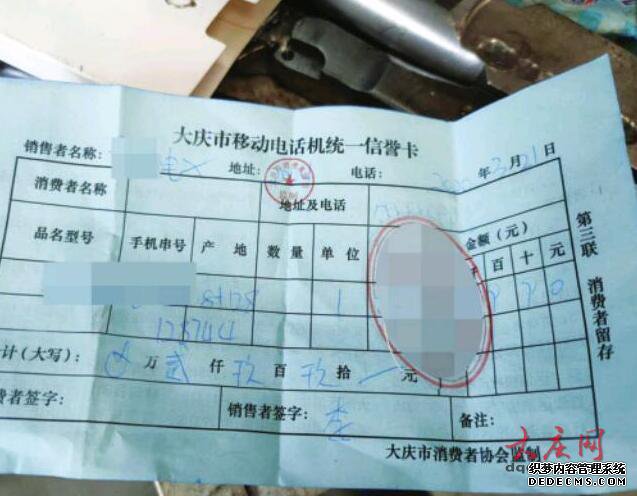 大庆市移动电话机统一信誉卡
销售者名称: 地址: 电话: 年3月21日
消费者名称 地址及电话
品名型号 手机串号 产地 数量 单位 金额(元)
百 十 元
8128 1 9 9 0
128744
计(大写): 万 贰 仟 玖 百 玖 拾 元
消费者签字: 销售者签字: 李 备注:
大庆市消费者协会监制
第三联 消费者留存
大庆网
织梦内容管理系统
DEDECMS.COM